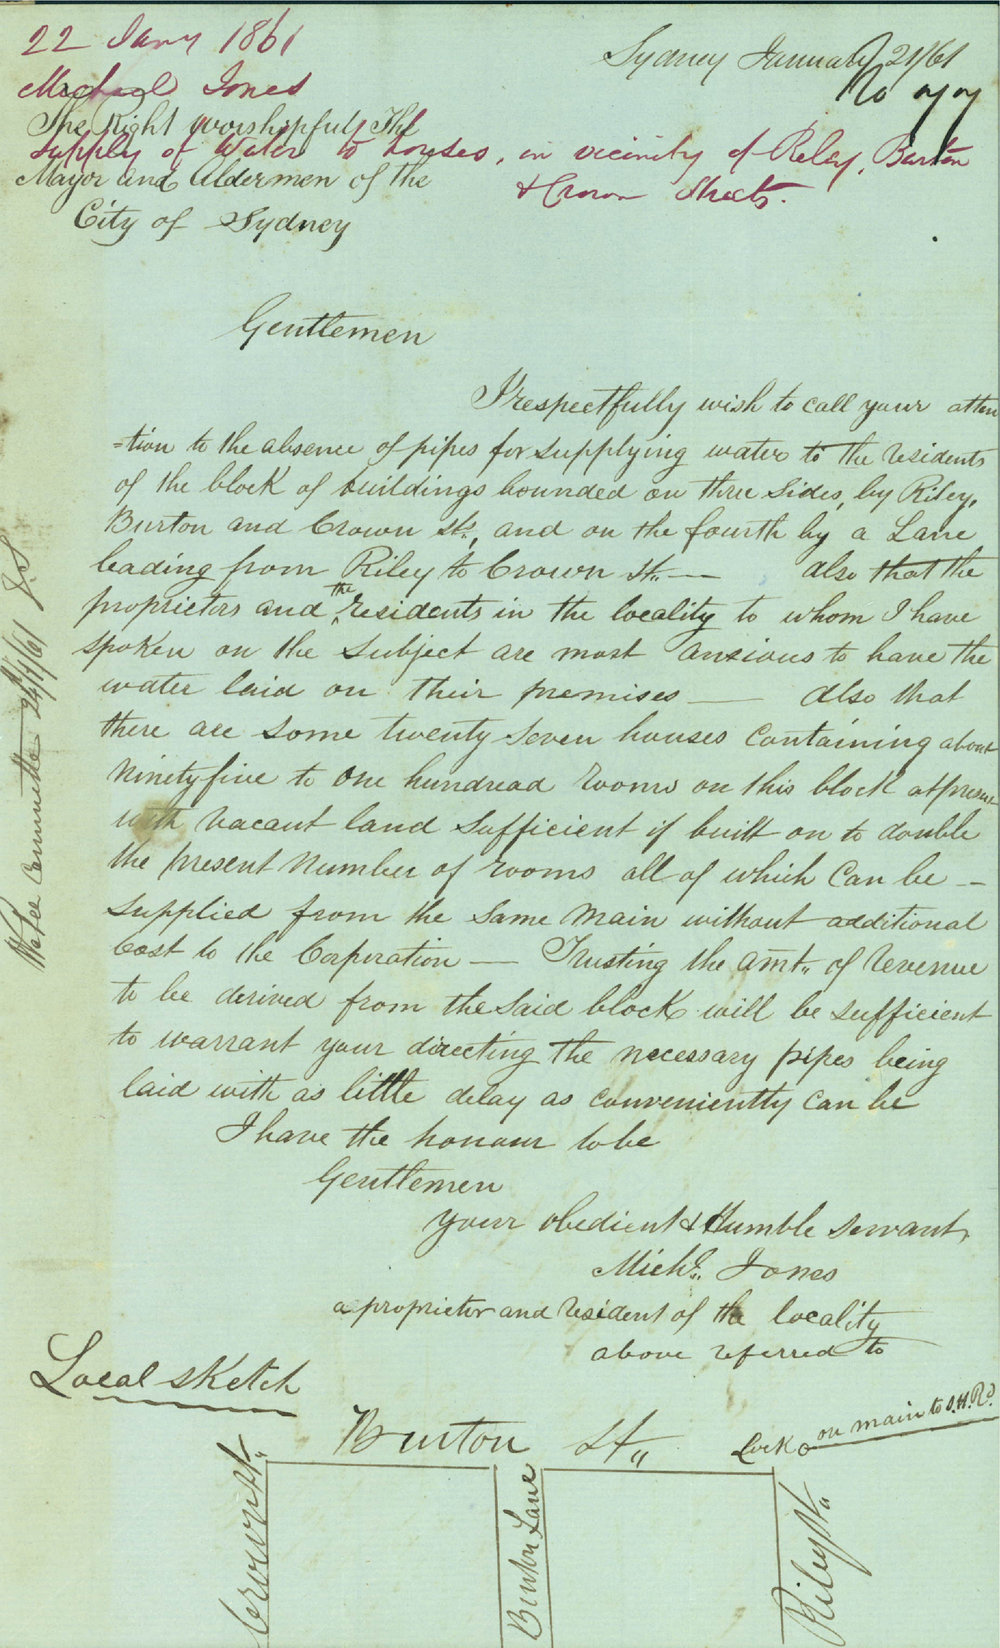 22 Jany 1861
Michael Jones
Supply of Water to houses, in vicinity of Riley, Burton
& Crown Streets.
Sydney January 21/61
No
The Right Worshipful The
Mayor and Aldermen of the
City of Sydney
Gentlemen
I respectfully wish to call your atten
-tion to the absence of pipes for supplying water to the residents
of the block of buildings bounded on three sides, by Riley,
Burton and Crown Sts., and on the fourth by a Lane
leading from Riley to Crown St. — also that the
proprietors and the residents in the locality to whom I have
spoken on the subject are most anxious to have the
water laid on their premises — Also that
there are some twenty seven houses containing about
Ninety five to One hundread rooms on this block at present
with vacant land sufficient if built on to double
the present number of rooms all of which can be —
supplied from the same main without additional
Cost to the Corporation — Trusting the amt. of revenue
to be derived from the said block will be sufficient
to warrant your directing the necessary pipes being
laid with as little delay as conveniently can be
I have the honour to be
Gentlemen
Your obedient & Humble Servant,
Michl. Jones
a proprietor and resident of the locality
above referred to
Water Committee 24/1/61
Local sketch
Burton St.
Cock on main to S.H.Rd.
Crown St.
Burton Lane
Riley St.